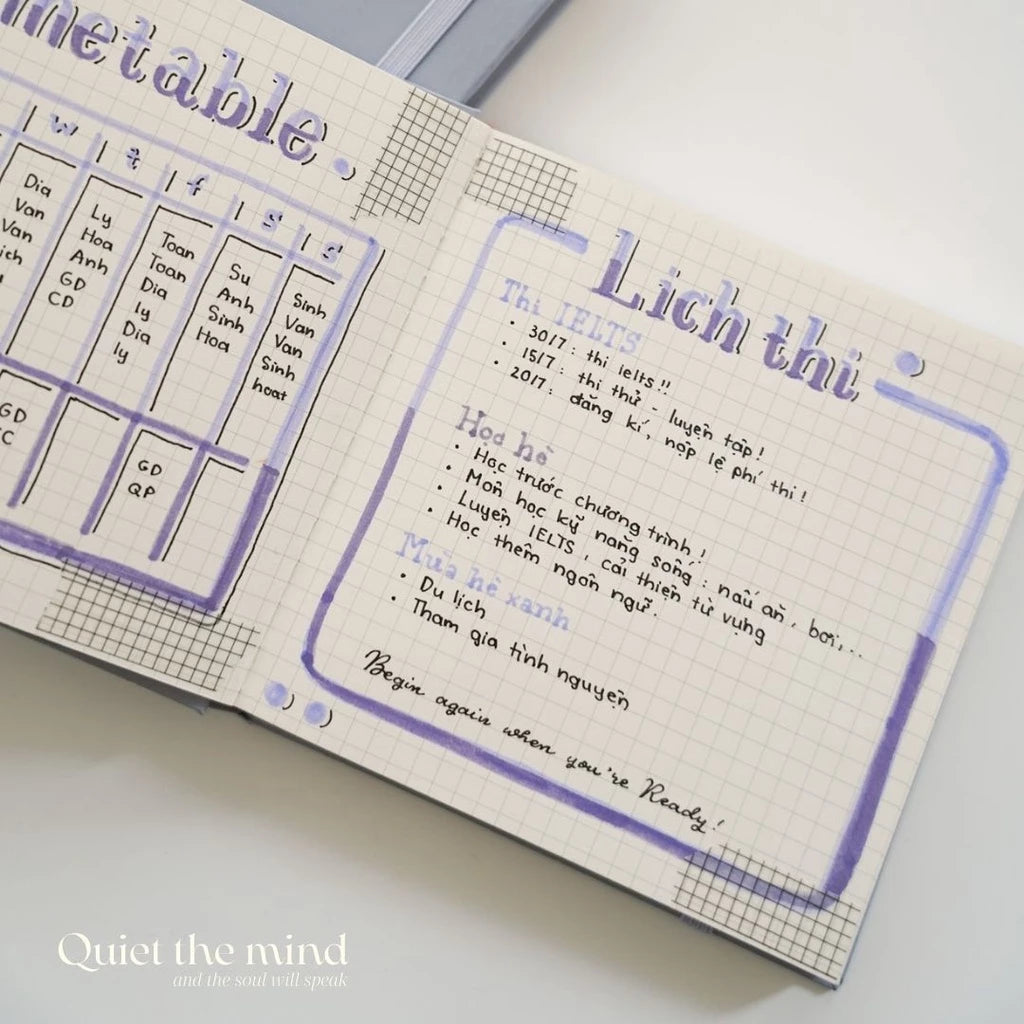 metable.
w t f s s
Dia
Van
Van
Ly
Hoa
Anh
GD
CD
Toan
Toan
Dia
ly
Dia
ly
Su
Anh
Sinh
Hoa
Sinh
Van
Van
Sinh
hoat
GD
GD
QP
Lich thi
Thi IELTS
• 30/7: thi ielts!!
• 15/7: thi thử - luyện tập!
• 20/7: đăng kí, nộp lệ phí thi!
Học hè
• Học trước chương trình!
• Môn học kỹ năng sống: nấu ăn, bơi,...
• Luyện IELTS, cải thiện từ vựng
• Học thêm ngôn ngữ.
Mùa hè xanh
• Du lịch
• Tham gia tình nguyện
Begin again when you're Ready!
Quiet the mind
and the soul will speak